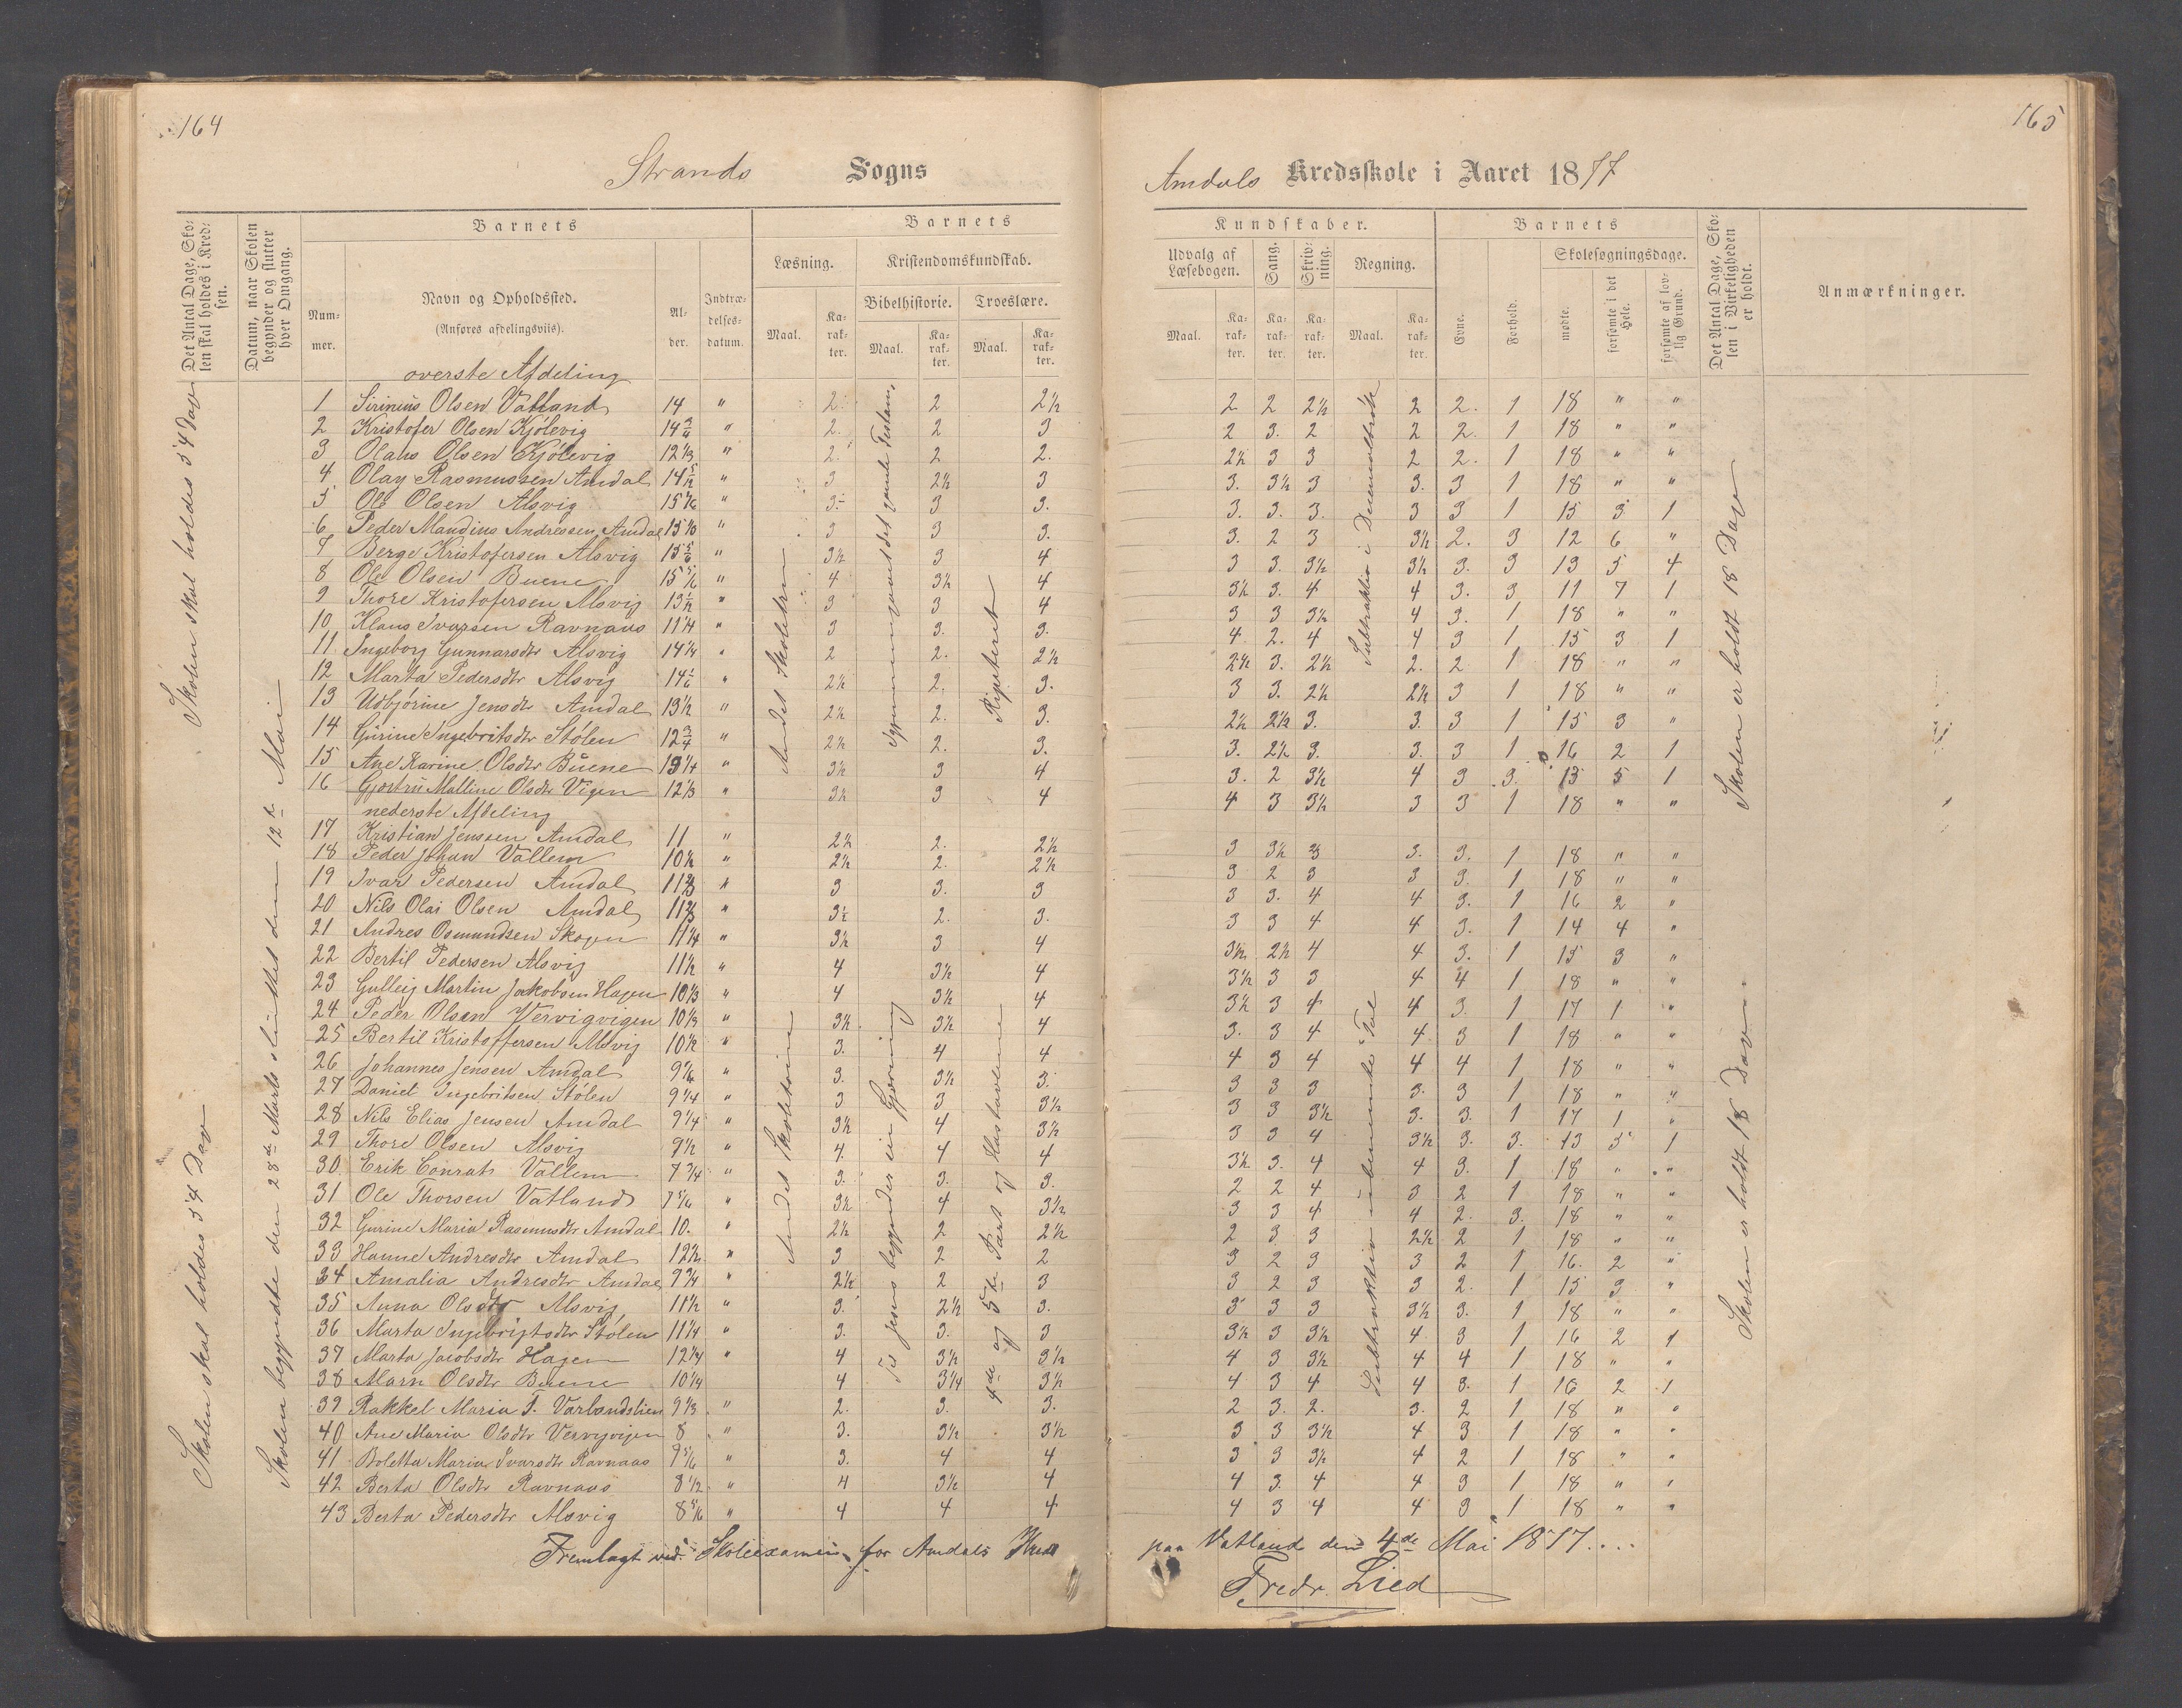 164
165
Strands Sogns
Amdals Kredsskole i Aaret 1877
Det Antal Dage, Sko-
len skal holdes i Kred-
sen.
Datum, naar Skolen
begynder og slutter
hver Omgang.
Barnets
Num-
mer.
Navn og Opholdssted.
(Anføres afdelingsviis).
Al-
der.
Indtræ-
delses-
datum.
Barnets
Læsning.
Kristendomskundskab.
Bibelhistorie. Troeslære.
Maal. Ka-
rak-
ter. Maal. Ka-
rak-
ter. Maal. Ka-
rak-
ter.
Kundskaber.
Udvalg af
Læsebogen.
Sang.
Skriv-
ning.
Regning.
Maal. Ka-
rak-
ter. Ka-
rak-
ter. Ka-
rak-
ter. Maal. Ka-
rak-
ter.
Barnets
Evne.
Forhold.
Skolesøgningsdage.
mødte.
forsømte i det
Hele.
forsømte af lov-
lig Grund.
Det Antal Dage, Sko-
len i Virkeligheden
er holdt.
Anmærkninger.
øverste Afdeling
1 Sirinius Olsen Vatland 14 " 2. 2 2½ 2 2 2½ 2 2. 1 18 " "
2 Kristofer Olsen Kjølevig 14¾ " 2. 2 3 2 3. 2 2 2. 1 18 " "
3 Olaus Olsen Kjølevig 12⅓ " 2. 2 2. 2½ 3 3 2 2. 1 18 " "
4 Olay Rasmussen Amdal " 3 2½ 3 3. 3½ 3 3. 3 1 18 " "
5 Ole Olsen Alsvig " 3 3 3. 3. 3. 3. 3 3 1 15 3 1
6 Peder Mandius Andressen Amdal " 3 3 3. 3. 2 3 3½ 2. 3 12 6 "
7 Berge Kristofersen Alsvig 15⅚ " 3½ 3 4 3 3. 3½ 3½ 3. 3 13 5 4
8 Ole Olsen Buene " 4 3½ 4 3½ 3. 4 4 3. 3 11 7 1
9 Thore Kristofersen Alsvig 13½ " 3 3 4 3 3 3½ 4 3. 1 18 " "
10 Klaus Ivarsen Ravnaas 11¼ " 3 3. 3. 4 2. 4 4 3 1 15 3 1
11 Ingeborg Gunnarsdtr Alsvig 14¼ " 2 2. 2½ 2½ 3. 2½ 2. 2 1 18 " "
12 Marta Pedersdtr Alsvig 14⅙ " 2½ 2. 3. 3 3. 2½ 2½ 3 1 18 " "
13 Udbjørine Jensdtr Amdal 13½ " 2½ 2. 3. 2½ 2½ 3. 3. 3 1 15 3 "
14 Gurine Ingebritsdtr Stølen 12¾ " 2½ 2. 3. 3. 2½ 3. 3. 3 1 16 2 1
15 Ane Karine Olsdtr Buene 13¼ " 3½ 3 4 3. 2 3½ 4 3 3. 13 5 1
16 Gjørtru Malline Olsdtr Vigen 12⅓ " 3½ 3 4 4 3 3½ 3 3 1 18 " "
nederste Afdeling
17 Kristian Jenssen Amdal 11 " 2½ 2. 2½ 3 3½ 3 3. 3. 1 18 " "
18 Peder Johan Vallem 10½ " 2½ 2. 2½ 3 2 3 3 3. 1 18 " "
19 Ivar Pedersen Amdal 11⅔ " 3 3. 3 3 3. 4 4 3. 1 16 2 "
20 Nils Olai Olsen Amdal 11⅔ " 3½ 2. 3. 3 3 4 4 3. 1 14 4 "
21 Andres Osmundsen Skogen 11¼ " 3½ 3 4 3½ 2½ 4 4 3. 1 15 3 "
22 Bertil Pedersen Alsvig 11½ " 4 3½ 4 3½ 3 3 4 4 1 18 " "
23 Gulleig Martin Jakobsen Hagen 10⅓ " 4 3½ 4 3½ 3 4 4 3. 1 17 1 "
24 Peder Olsen Vervigvigen 10⅓ " 3½ 3½ 4 3. 3 4 4 3 1 18 " "
25 Bertil Kristoffersen Alsvig 10½ " 3. 4 4 4 3 4 4 4 1 18 " "
26 Johannes Jensen Amdal " 3. 3½ 3. 3 3 3 3. 3 1 18 " "
27 Daniel Ingebritsen Stølen 9¼ " 3 3 3½ 3 3 3½ 3. 3. 1 17 1 "
28 Nils Elias Jensen Amdal 9¼ " 3½ 4 3½ 3 3 4 3½ 3. 3. 13 5 1
29 Thore Olsen Alsvig 9½ " 4. 4 4 3½ 3. 4 4 3. 1 18 " "
30 Erik Conrats Vallem 7¾ " 3. 3. 3. 2 2 4 3 2 1 18 " "
31 Ole Thorsen Vatland 7⅚ " 3½ 4 3½ 3 3 4 4 2. 3. 18 " "
32 Gurine Maria Rasmusdtr Amdal 10. " 2½ 2 2½ 2 3 3 2½ 2 1 18 " "
33 Hanne Andresdtr Amdal 12½ " 3 2 2 3 2 3 3 2 1 16. 2 "
34 Amalia Andresdtr Amdal 9¾ " 2½ 2 3 3 2 3 3 2. 1 15 3 "
35 Anna Olsdtr Alsvig 11½ " 3. 2½ 3. 3 3 3 3½ 3. 1 18 " "
36 Marta Ingebrigtsdtr Stølen 11¼ " 3. 3. 3 3½ 3 3½ 4 3 1 16 2 1
37 Marta Jacobsdtr Hagen 12¼ " 4 3½ 3½ 4 3 3½ 4 4 1 18 " "
38 Marn Olsdtr Buene 10¼ " 4 3¼ 3½ 4 3 4 4 3. 1 16 2 1
39 Rakkel Maria T. Varlandslien 9⅓ " 2. 3. 3. 2 3. 2. 3. 2 1 18 " "
40 Ane Maria Olsdtr Vervigvigen 8 " 3. 3½ 3½ 3 3 3½ 4 3 1 18 " "
41 Boletta Maria Ivarsdtr Ravnaas 9⅚ " 3. 4 4 3 3 3½ 4 2 1 18 " "
42 Berta Olsdtr Ravnaas 8½ " 4 3½ 4 4 3. 4 4 3 1 18 " "
43 Berta Pedersdtr Alsvig 8⅚ " 4 4 4 4 3 4 4 3 1 18 " "
Skolen skal holdes 54 Dage
Skolen skal holdes 54 Dav
Skolen begyndte den 28de Marts sluttet den 12te Mai
Andet Skoletrin
Andet Skoletrin
Igjennemgaaet det gamle Testam,
Til Jesus begynder sin Gjerning
Ripeteret
4de og 5te Part og Hustavlen
Subtraktion i Decimalbrøk
Subtraktion i ubenævnte Tal
Skolen er holdt 18 Dage
Skolen er holdt 18 Dav
Fremlagt ved Skoleexamen for Amdals Kreds paa Vatland den 4de Mai 1877....
Fredr. Lied